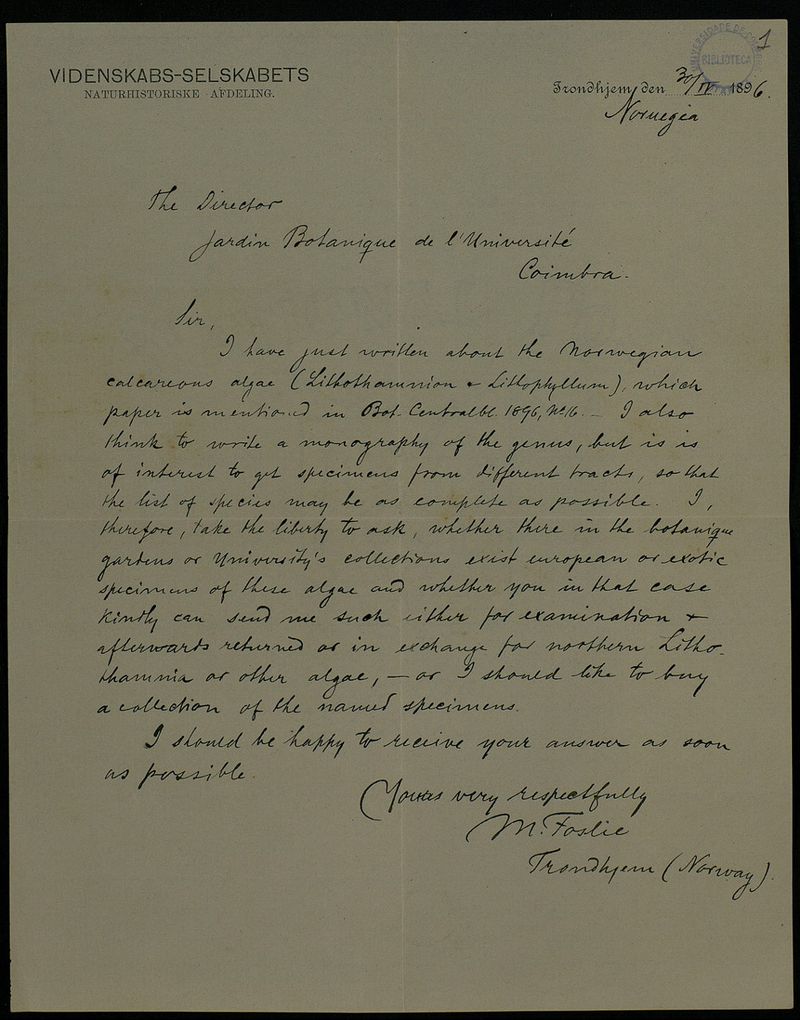 1
UNIVERSIDADE DE
BIBLIOTECA
VIDENSKABS-SELSKABETS
NATURHISTORISKE AFDELING.
Trondhjem den 30/IV 1896.
Noruegia
The Director
Jardin Botanique de l'Université
Coimbra.
Sir,
I have just written about the Norwegian
calcareous algae (Lithothamnion & Lithophyllum), which
paper is mentioned in Bot. Centralbl. 1896, No 16. — I also
think to write a monography of the genus, but is is
of interest to get specimens from different tracts, so that
the list of species may be as complete as possible. I,
therefore, take the liberty to ask, whether there in the botanique
gardens or University's collections exist european or exotic
specimens of these algae and whether you in that case
kindly can send me such either for examination &
afterwards returned or in exchange for northern Litho-
thamnia or other algae, — or I should like to buy
a collection of the named specimens.
I should be happy to receive your answer as soon
as possible.
Yours very respectfully
M. Foslie
Trondhjem (Norway).